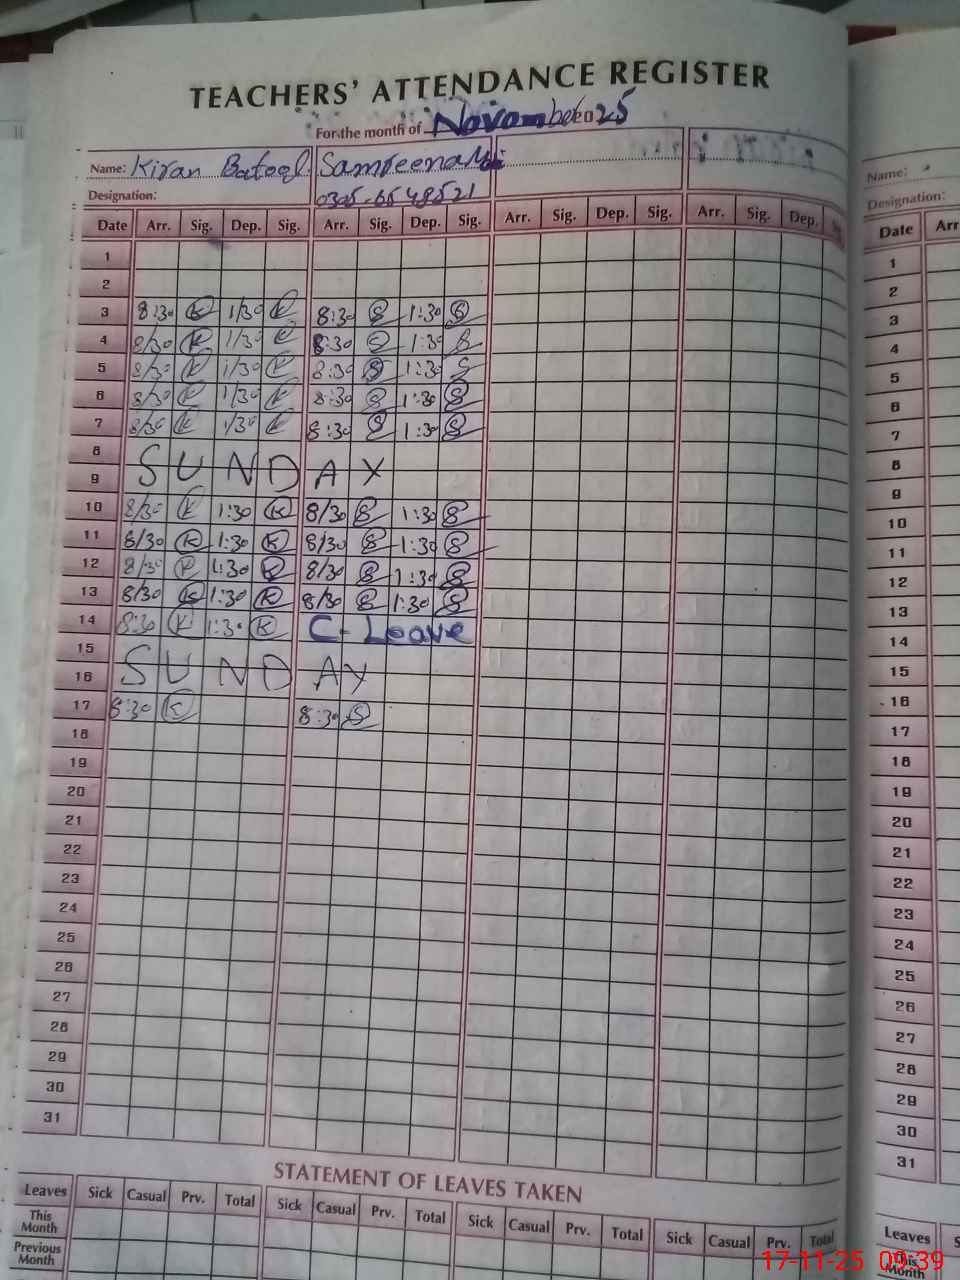 TEACHERS' ATTENDANCE REGISTER
For the month of November 2025
Name: Kiran Batool Samreena
Designation: 0305-6549521
Date Arr. Sig. Dep. Sig. Arr. Sig. Dep. Sig. Arr. Sig. Dep. Sig. Arr. Sig. Dep.
1
2
3 8:30 K 1/30 K 8:30 S 1:30 S
4 8/30 K 1/30 K 8:30 S 1:30 S
5 8/30 K 1/30 K 8:30 S 1:30 S
6 8/30 K 1/30 K 8:30 S 1:30 S
7 8/30 K 1/30 K 8:30 S 1:30 S
8
9 SUNDAY
10 8/30 K 1:30 K 8/30 S 1:30 S
11 8/30 K 1:30 K 8/30 S 1:30 S
12 8/30 K 1:30 K 8/30 S 1:30 S
13 8/30 K 1:30 K 8/30 S 1:30 S
14 8:30 K 1:30 K C-Leave
15
16 SUNDAY
17 8:30 K 8:30 S
18
19
20
21
22
23
24
25
26
27
28
29
30
31
STATEMENT OF LEAVES TAKEN
Leaves Sick Casual Prv. Total Sick Casual Prv. Total Sick Casual Prv. Total Sick Casual Prv. Total
This Month
Previous Month
Name:
Designation:
Date Arr
1
2
3
4
5
6
7
8
9
10
11
12
13
14
15
16
17
18
19
20
21
22
23
24
25
26
27
28
29
30
31
Leaves
This Month
17-11-25 09:39